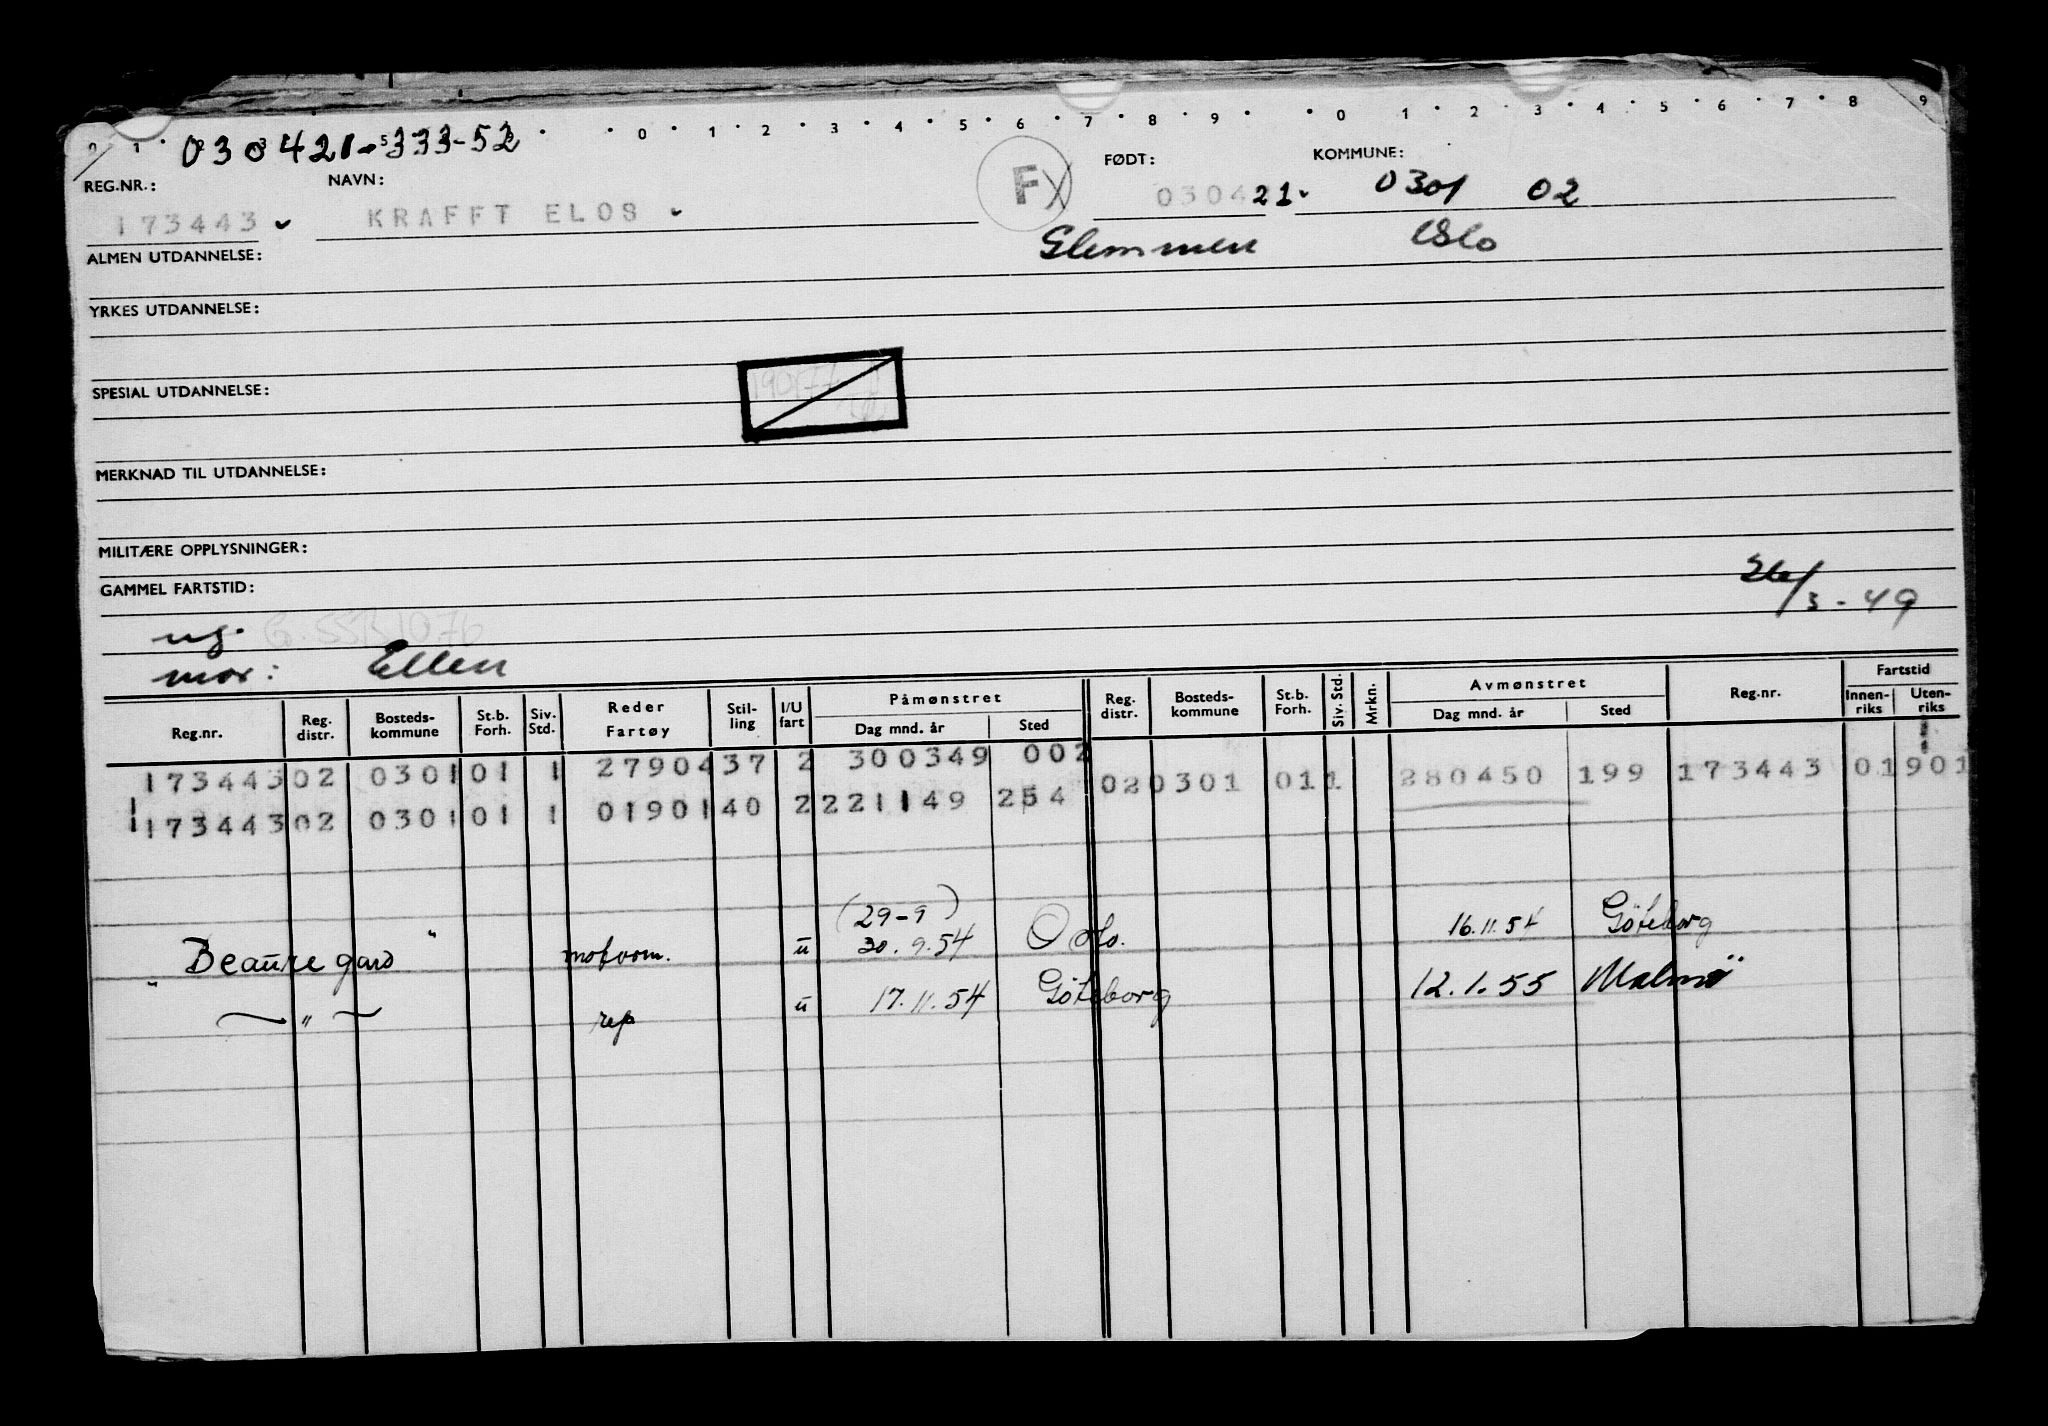 0 1 2 3 4 5 6 7 8 9 0 1 2 3 4 5 6 7 8 9
030421-333-52
REG.NR.: NAVN: FØDT: KOMMUNE:
173443 KRAFFT ELOS F 030421. 0301 02
Glemmen Oslo
ALMEN UTDANNELSE:
YRKES UTDANNELSE:
SPESIAL UTDANNELSE:
MERKNAD TIL UTDANNELSE:
MILITÆRE OPPLYSNINGER:
GAMMEL FARTSTID:
/3-49
ug.
mor: Ellen
Reg.nr. Reg. distr. Bosteds-kommune St.b. Forh. Siv. Std. Reder Fartøy Stil-ling I/U fart Påmønstret Dag mnd. år Sted Reg. distr. Bosteds-kommune St.b. Forh. Siv. Std. Mrkn. Avmønstret Dag mnd. år Sted Reg.nr. Fartstid Innen-riks Uten-riks
173443 02 0301 01 1 27904 37 2 300349 002
02 0301 01 1 280450 199 173443 01 901
173443 02 0301 01 1 01901 40 2 221149 254
(29-9)
"Beauregard" motorm. u 30.9.54 Oslo. 16.11.54 Göteborg
— " — rep u 17.11.54 Göteborg 12.1.55 Malmö